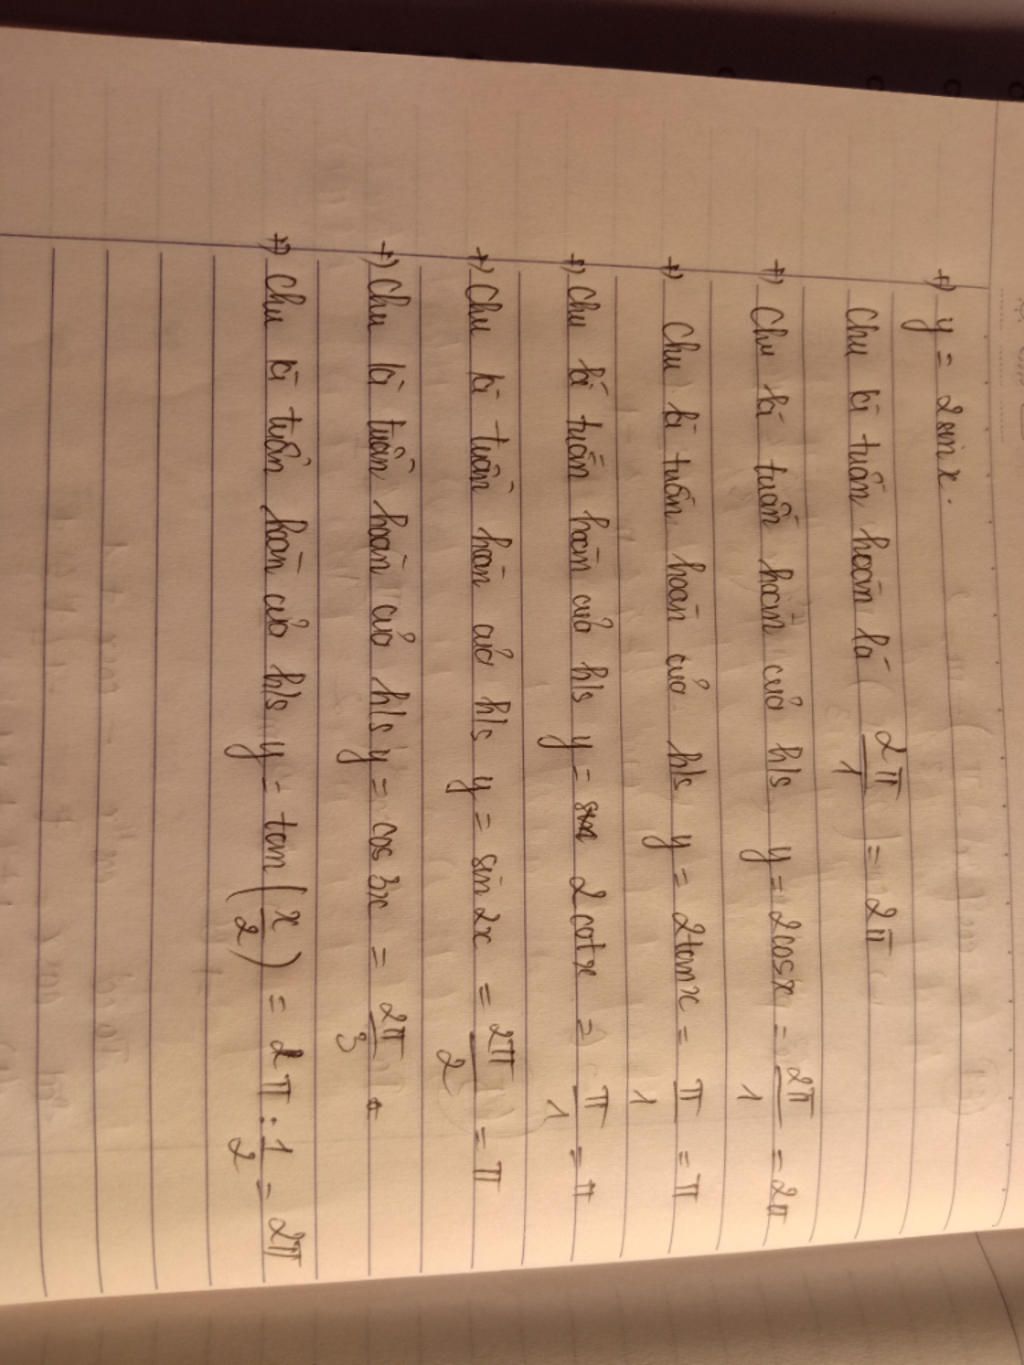 +) y = 2sin x.
Chu kì tuần hoàn là 2π/1 = 2π
+) Chu kì tuần hoàn của h/s y = 2cosx = 2π/1 = 2π
+) Chu kì tuần hoàn của h/s y = 2tanx = π/1 = π
+) Chu kì tuần hoàn của h/s y = 2cotx = π/1 = π
+) Chu kì tuần hoàn của h/s y = sin 2x = 2π/2 = π
+) Chu kì tuần hoàn của h/s y = cos 3x = 2π/3
+) Chu kì tuần hoàn của h/s y = tan(x/2) = π : 1/2 = 2π